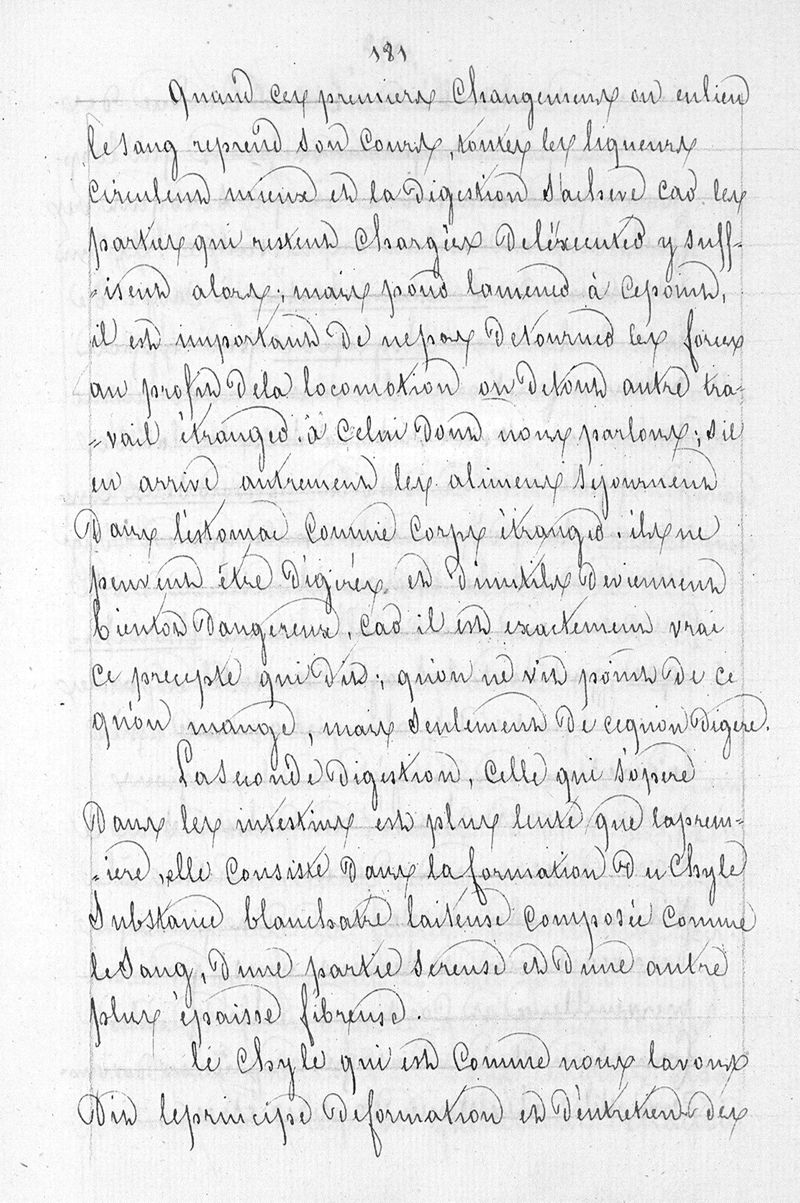 181
Quand ces premiers changemens on enlieu
le sang reprend son cours, toutes les liqueurs
circulent mieux et la digestion s'acheve car les
parties qui restent chargées de l'éxecuter y suff-
-isent alors; mais pour lamener à cepoint,
il est important de nepas detourner les forces
au profit dela locomotion ou detout autre tra-
-vail étranger à celui dont nous parlons; s'il
en arrive autrement les alimens sejournent
dans l'estomac comme corps étranger. ils ne
peuvent être digérés et d'inutils deviennent
bientot dangereux, car il est exactement vrai
ce precepte qui dit; qu'on ne vit point de ce
qu'on mange, mais seulement de cequon digere.
La Seconde digestion, celle qui s'opere
dans les intestins est plus lente que laprem-
-iere, elle consiste dans la formation du Chyle
Substance blanchatre laiteuse composée comme
le Sang, d'une partie sereuse et d'une autre
plus épaisse fibreuse.
le Chyle qui est comme nous lavons
dit leprincipe deformation et d'entretien des